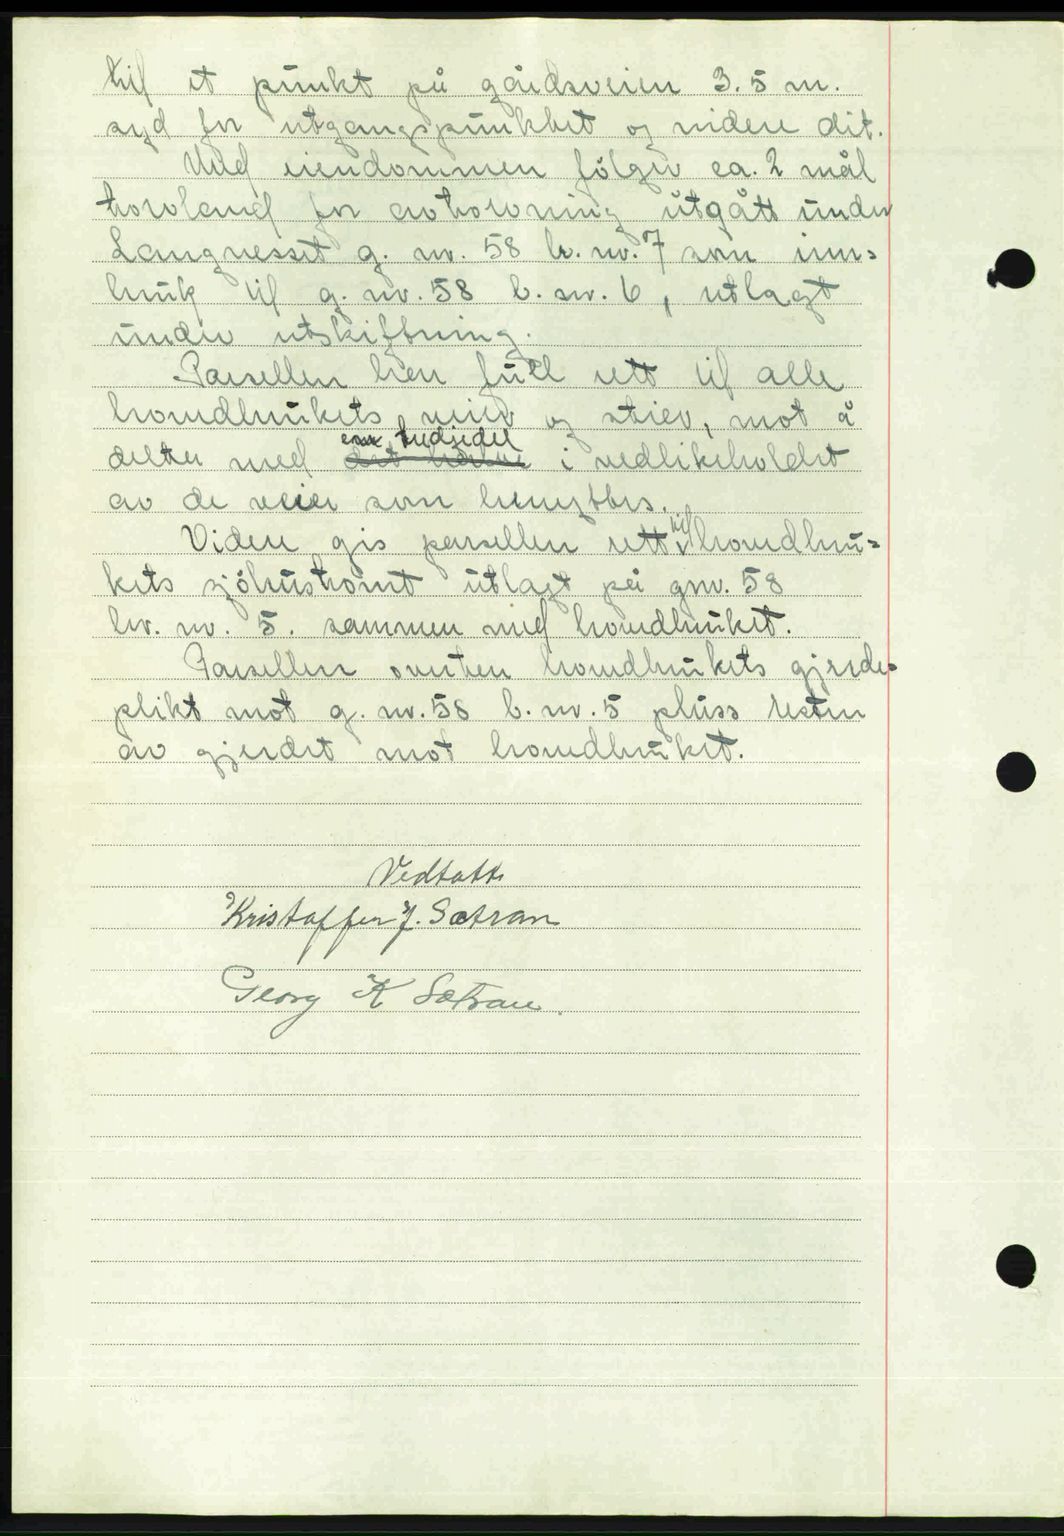 til et punkt på gårdsveien 3.5 m.
syd for utgangspunktet og videre dit.
Med eiendommen følger ca. 2 mål
torvland for avtorvning utgått under
Langnesset g. nr. 58 br. nr. 7 som inn=
bruk til g. nr. 58 b. nr. 6, utlagt
under utskiftning.
Parsellen har full rett til alle
hovedbrukets veier og stier, mot å
en tredjedel
delta med det halve i vedlikeholdet
av de veier som benyttes.
Videre gis parsellen rett til hovedbru=
kets sjøhustomt utlagt på gnr. 58
br. nr. 5. sammen med hovedbruket.
Parsellen overtar hovedbrukets gjerde=
plikt mot g. nr. 58 b. nr. 5 pluss resten
av gjerdet mot hovedbruket.
Vedtatt
Kristoffer J. Sætran
Georg K Sætran.